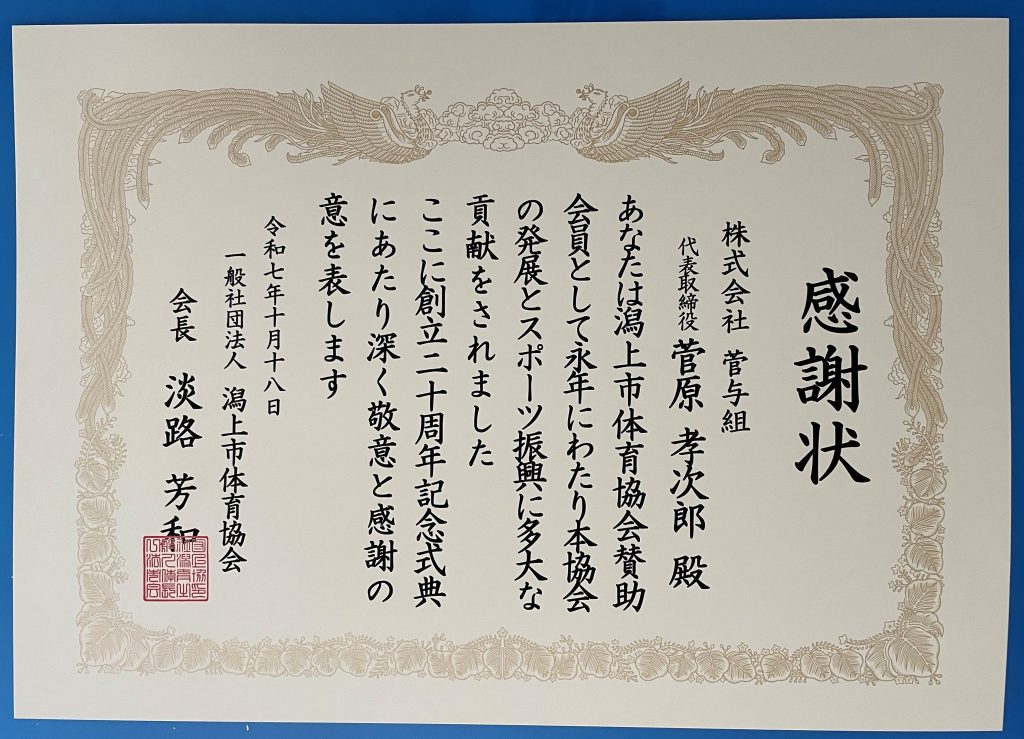 感謝状
株式会社 菅与組
代表取締役 菅原 孝次郎 殿
あなたは潟上市体育協会賛助
会員として永年にわたり本協会
の発展とスポーツ振興に多大な
貢献をされました
ここに創立二十周年記念式典
にあたり深く敬意と感謝の
意を表します
令和七年十月十八日
一般社団法人 潟上市体育協会
会長 淡路 芳和